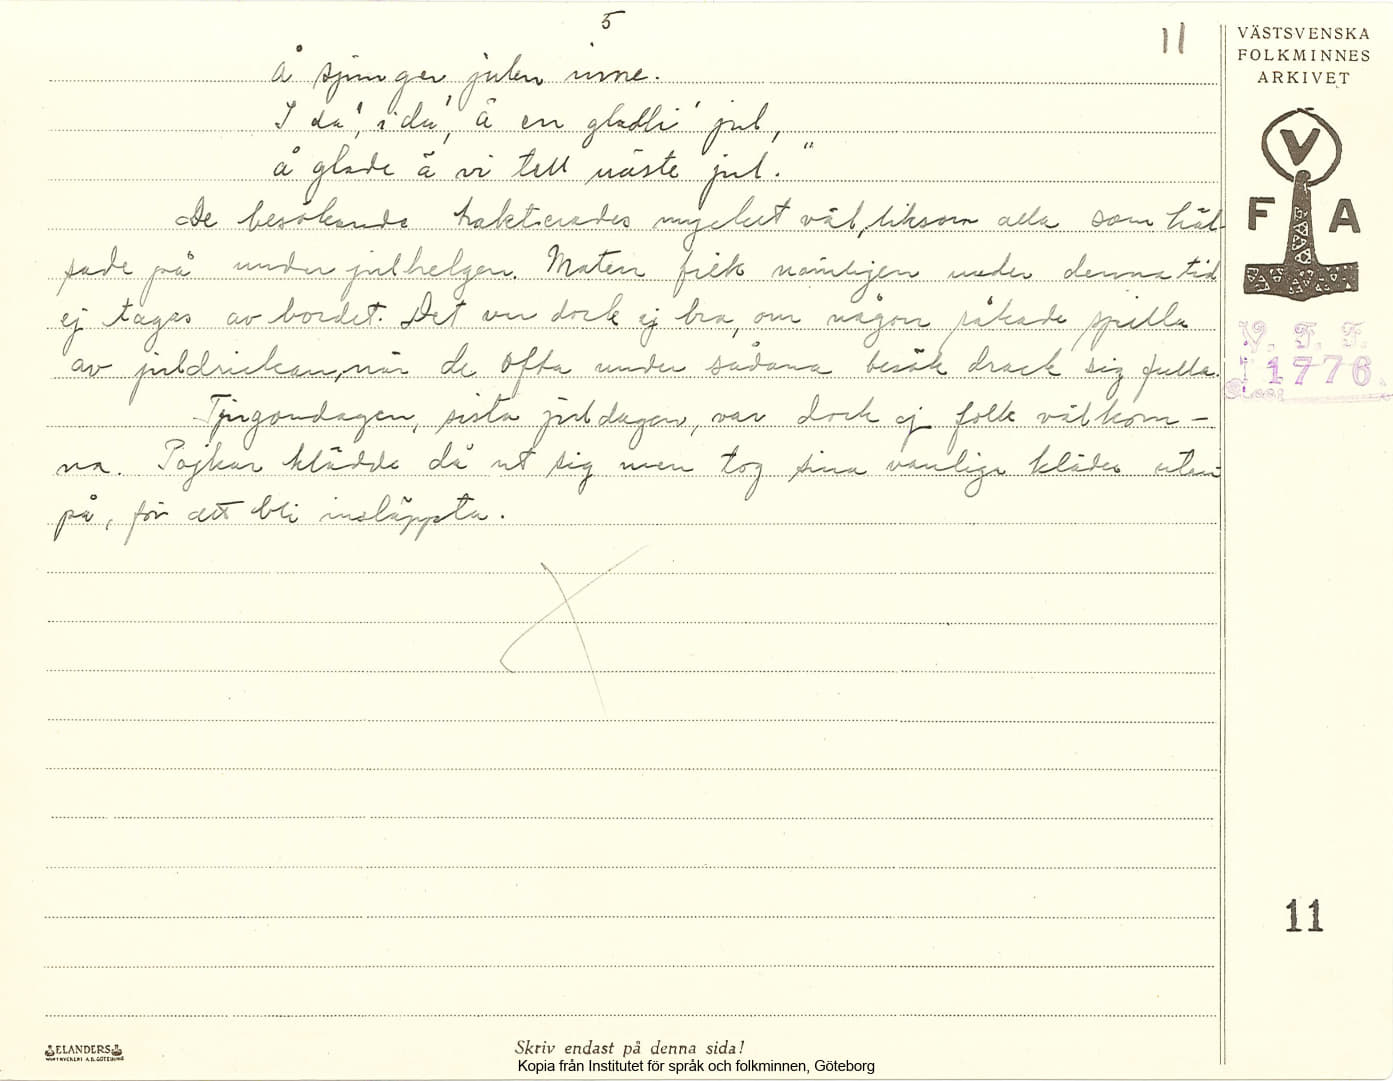 5
11
VÄSTSVENSKA
FOLKMINNES
ARKIVET
V
F A
V. F. F.
1776
å sjunger julen inne.
I da', i da', ä en gladli' jul,
å glade ä vi tell näste jul."
De besökande trakterades mycket väl, liksom alla som häl-
sade på under julhelgen. Maten fick nämligen under denna tid
ej tagas av bordet. Det var dock ej bra, om någon råkade spilla
av juldrickan, när de ofta under sådana besök drack sig fulla.
Tjugondagen, sista juldagen, var dock ej folk välkom-
na. Pojkar klädde då ut sig men tog sina vanliga kläder utan
på, för att bli insläppta.
11
ELANDERS
Skriv endast på denna sida!
Kopia från Institutet för språk och folkminnen, Göteborg